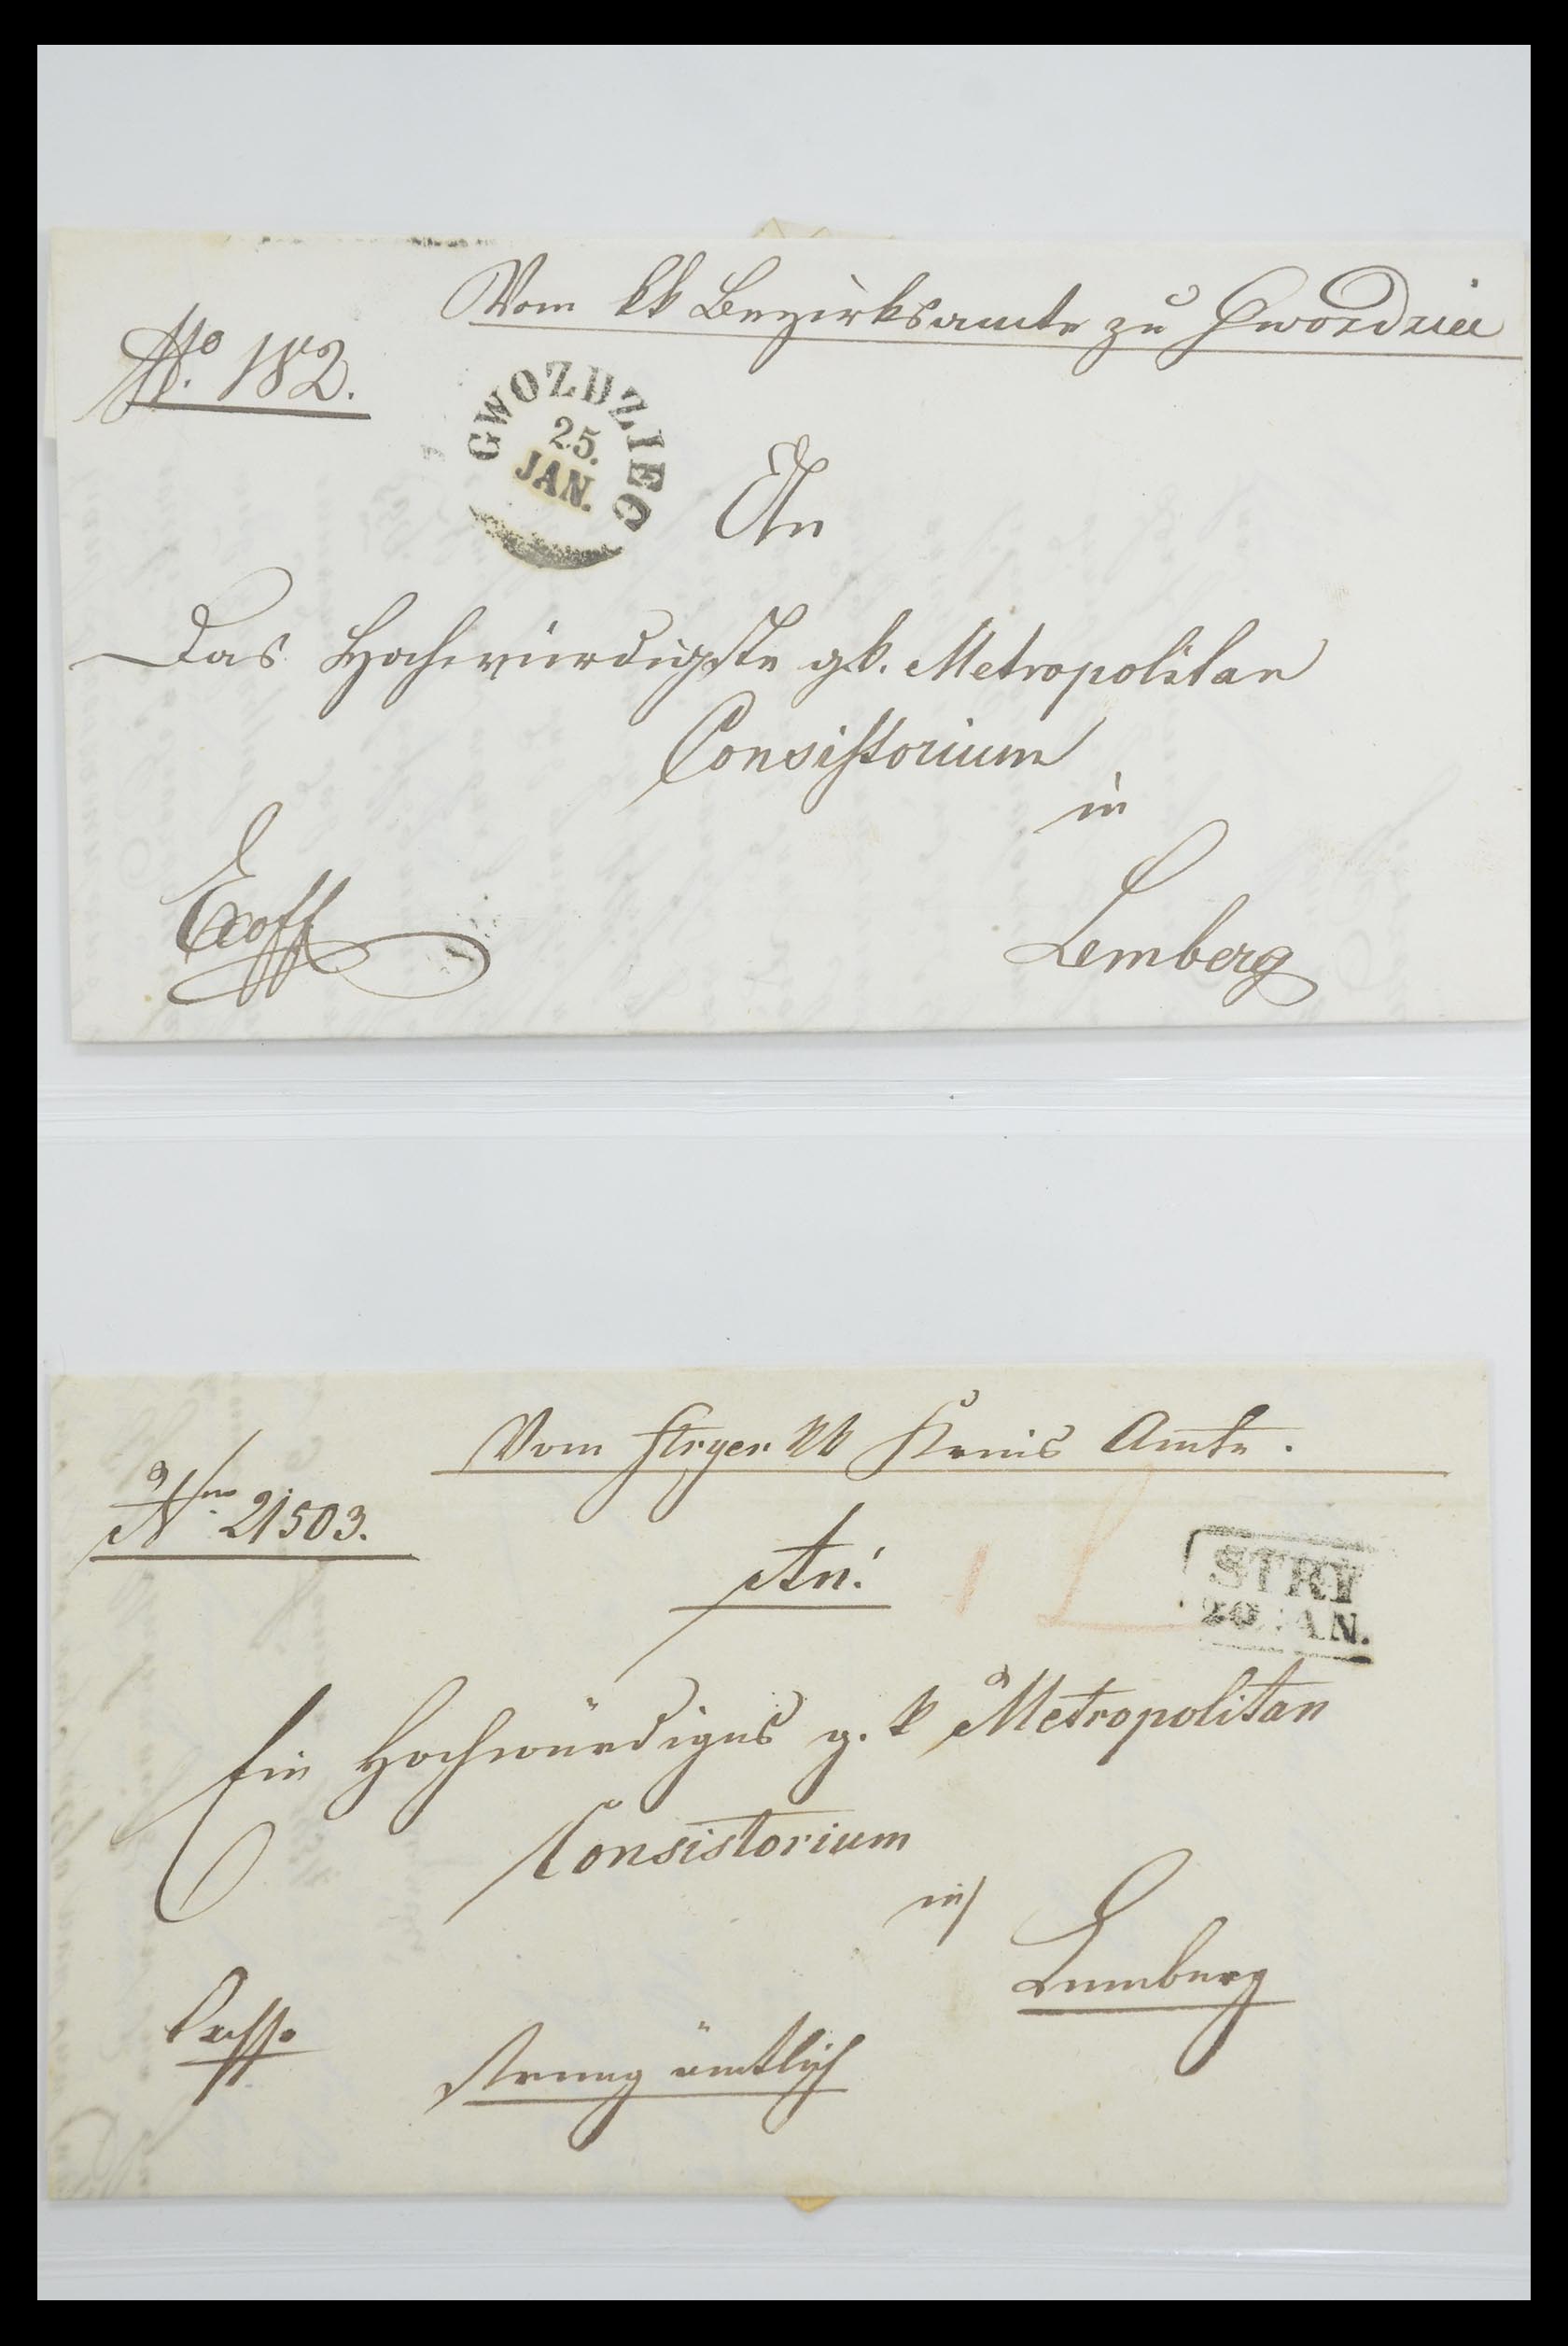 Vom kk Bezirksamte zu Gwozdziec
No. 182.
GWOZDZIEC
25.
JAN.
An
Das Hochwürdigste gk. Metropolitan
Consistorium
in
Lemberg
Exoff
Vom Stryer kk Kreis Amte.
Nro 21503.
An:
STRY
20 JAN.
Ein Hochwürdiges g. k Metropolitan
Consistorium
in
Lemberg
streng ämtlich